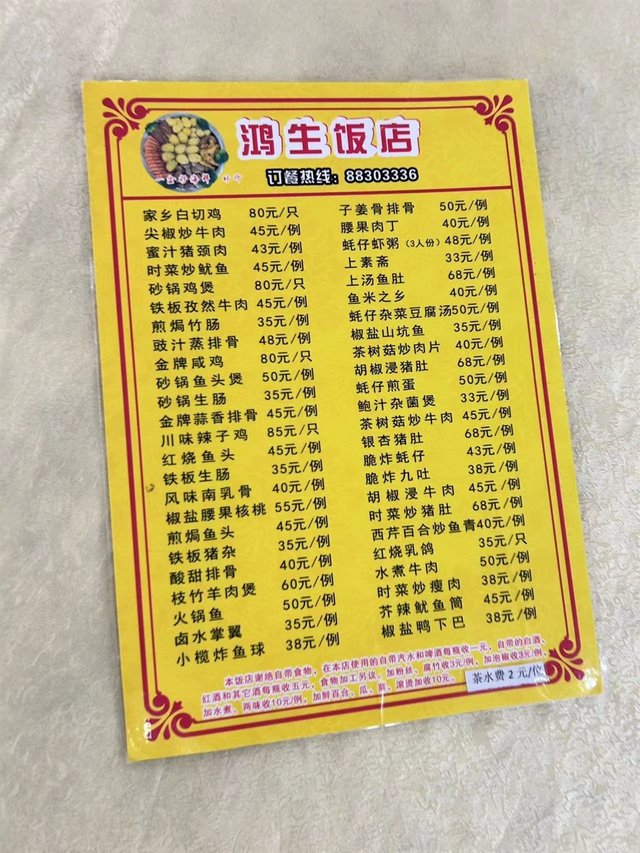 鸿生饭店
订餐热线：88303336
家乡白切鸡 80元/只
尖椒炒牛肉 45元/例
蜜汁猪颈肉 43元/例
时菜炒鱿鱼 45元/例
砂锅鸡煲 80元/只
铁板孜然牛肉 45元/例
煎焗竹肠 35元/例
豉汁蒸排骨 48元/例
金牌咸鸡 80元/只
砂锅鱼头煲 50元/例
砂锅生肠 35元/例
金牌蒜香排骨 45元/例
川味辣子鸡 85元/只
红烧鱼头 45元/例
铁板生肠 35元/例
风味南乳骨 40元/例
椒盐腰果核桃 55元/例
煎焗鱼头 45元/例
铁板猪杂 35元/例
酸甜排骨 40元/例
枝竹羊肉煲 60元/例
火锅鱼 50元/例
卤水掌翼 35元/例
小榄炸鱼球 38元/例
子姜骨排骨 50元/例
腰果肉丁 40元/例
蚝仔虾粥（3人份）48元/例
上素斋 33元/例
上汤鱼肚 68元/例
鱼米之乡 40元/例
蚝仔杂菜豆腐汤50元/例
椒盐山坑鱼 35元/例
茶树菇炒肉片 40元/例
胡椒浸猪肚 68元/例
蚝仔煎蛋 50元/例
鲍汁杂菌煲 33元/例
茶树菇炒牛肉 45元/例
银杏猪肚 68元/例
脆炸蚝仔 43元/例
脆炸九吐 38元/例
胡椒浸牛肉 45元/例
时菜炒猪肚 68元/例
西芹百合炒鱼青40元/例
红烧乳鸽 35元/只
水煮牛肉 50元/例
时菜炒瘦肉 38元/例
芥辣鱿鱼筒 45元/例
椒盐鸭下巴 38元/例
本饭店谢绝自带食物，在本店使用的自带汽水和啤酒每瓶收一元，自带的白酒、
红酒和其它酒每瓶收五元，食物加工另议，加粉丝、腐竹收3元/例，加泡椒收3元/例，
加水煮，两味收10元/例，加鲜百合、瓜、翅，滚烫加收10元。
茶水费 2 元/位